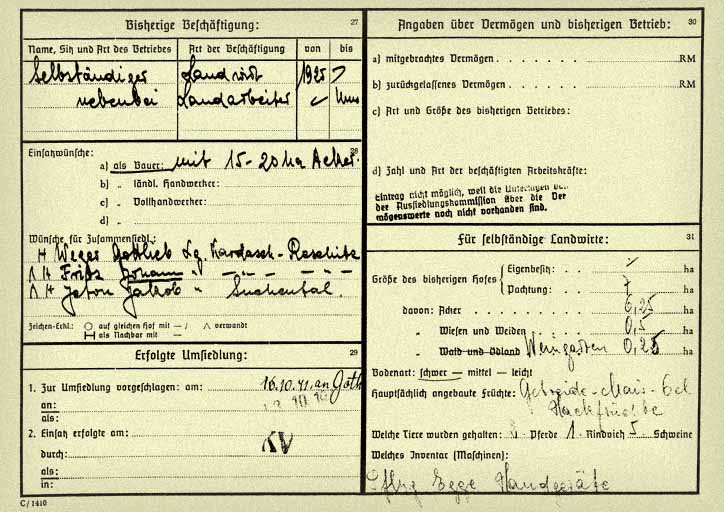 Bisherige Beschäftigung: 27
Name, Sitz und Art des Betriebes Art der Beschäftigung von bis
Selbständiger Landwirt 1925
nebenbei Landarbeiter
Einsatzwünsche: 28
a) als Bauer: mit 15-20 ha Acker.
b) „ ländl. Handwerker:
c) „ Vollhandwerker:
d) „
Wünsche für Zusammensiedl.:
H Weger Gottlieb Lg. Kardasch-Reschitz
Λ H Fritz Johann " — " — — " —
Λ H Jakob " Suchental.
Zeichen-Erkl.: ○ auf gleichen Hof mit — / Λ verwandt
H als Nachbar mit —
Erfolgte Umsiedlung: 29
1. Zur Umsiedlung vorgeschlagen: am: 16.10.41. an
an:
als:
2. Einsatz erfolgte am:
durch:
als:
in:
C/1410
Angaben über Vermögen und bisherigen Betrieb: 30
a) mitgebrachtes Vermögen . . . . . . . RM
b) zurückgelassenes Vermögen . . . . . . RM
c) Art und Größe des bisherigen Betriebes:
d) Zahl und Art der beschäftigten Arbeitskräfte:
Eintrag nicht möglich, weil die Unterlagen
der Aussiedlungskommission über die Ver
mögenswerte noch nicht vorhanden sind.
Für selbständige Landwirte: 31
Größe des bisherigen Hofes { Eigenbesitz: . . . ha
Pachtung: . . . 7 ha
davon: Acker . . . . . . . . 6,25 ha
„ Wiesen und Weiden . . . . 0,5 ha
„ Wald und Ödland Weingarten 0,25 ha
Bodenart: schwer — mittel — leicht
Hauptsächlich angebaute Früchte: Getreide-Mais-
Hackfrüchte
Welche Tiere wurden gehalten: Pferde 1 Rindvieh 5 Schweine
Welches Inventar (Maschinen):
Pflug Egge Handgeräte